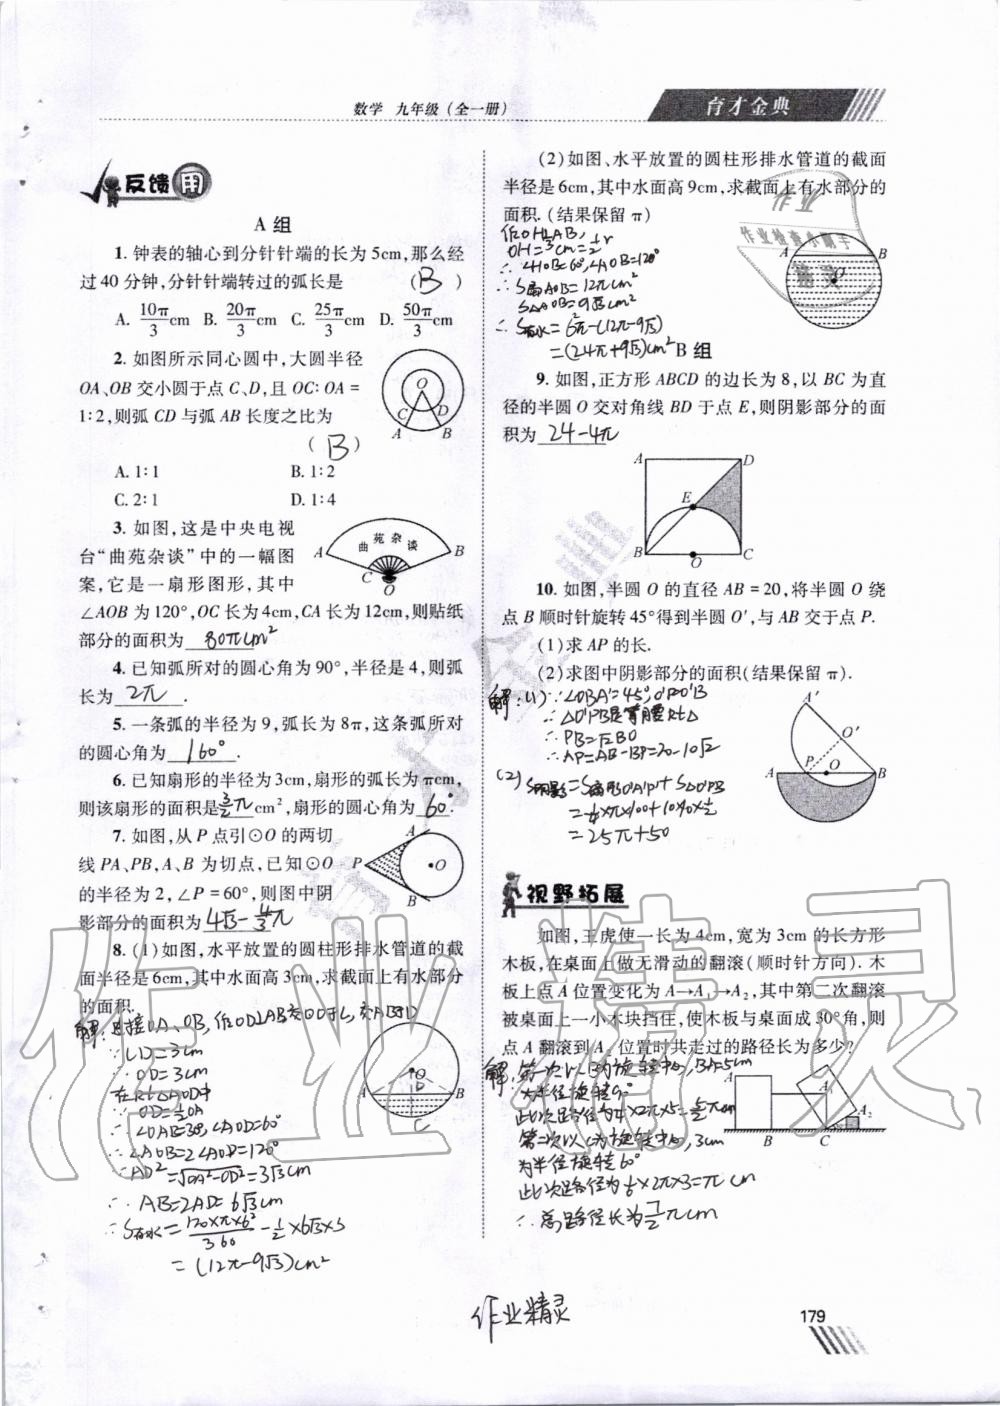 数学 九年级(全一册)
育才金典
反馈用
A 组
1. 钟表的轴心到分针针端的长为5cm,那么经
过40分钟,分针针端转过的弧长是 ( B )
A. 10π/3 cm B. 20π/3 cm C. 25π/3 cm D. 50π/3 cm
2. 如图所示同心圆中,大圆半径
OA、OB 交小圆于点 C、D,且 OC∶OA=
1∶2,则弧 CD 与弧 AB 长度之比为
( B )
A. 1∶1 B. 1∶2
C. 2∶1 D. 1∶4
3. 如图,这是中央电视
台“曲苑杂谈”中的一幅图
案,它是一扇形图形,其中
∠AOB 为120°,OC 长为4cm,CA 长为12cm,则贴纸
部分的面积为 80πcm²
4. 已知弧所对的圆心角为90°,半径是4,则弧
长为 2π .
5. 一条弧的半径为9,弧长为8π,这条弧所对
的圆心角为 160° .
6. 已知扇形的半径为3cm,扇形的弧长为πcm,
则该扇形的面积是 3/2π cm²,扇形的圆心角为 60° .
7. 如图,从 P 点引⊙O 的两切
线 PA、PB,A、B 为切点,已知⊙O
的半径为2,∠P=60°,则图中阴
影部分的面积为 4√3-4/3π
8. (1)如图,水平放置的圆柱形排水管道的截
面半径是6cm,其中水面高3cm,求截面上有水部分
的面积.
解:连接OA、OB,作OD⊥AB交⊙O于C,交AB于D
∵CD=3cm
∴OD=3cm
在Rt△AOD中
∵OD=1/2OA
∴∠OAB=30°,∠AOD=60°
∴∠AOB=2∠AOD=120°
∴AD=√OA²-OD²=3√3cm
∴AB=2AD=6√3cm
∴S有水=120×π×6²/360-1/2×6√3×3
=(12π-9√3)cm²
(2)如图、水平放置的圆柱形排水管道的截面
半径是6cm,其中水面高9cm,求截面上有水部分的
面积.(结果保留 π)
作OH⊥AB,
OH=3cm=1/2r
∴∠HOB=60°,∠AOB=120°
∴S扇AOB=12πcm²
S△AOB=9√3cm²
∴S有水=6²π-(12π-9√3)
=(24π+9√3)cm²
B 组
9. 如图,正方形 ABCD 的边长为8,以 BC 为直
径的半圆 O 交对角线 BD 于点 E,则阴影部分的面
积为 24-4π
10. 如图,半圆 O 的直径 AB=20,将半圆 O 绕
点 B 顺时针旋转45°得到半圆 O′,与 AB 交于点 P.
(1)求 AP 的长.
(2)求图中阴影部分的面积(结果保留 π).
解:(1)∵∠OBA′=45°,O′P=O′B
∴△O′PB是等腰Rt△
∴PB=√2BO
∴AP=AB-BP=20-10√2
(2)S阴影=S扇形O′A′P+S△O′PB
=1/4×π×100+10×10×1/2
=25π+50
视野拓展
如图,王虎使一长为4cm,宽为3cm的长方形
木板,在桌面上做无滑动的翻滚(顺时针方向). 木
板上点 A 位置变化为 A→A₁→A₂,其中第二次翻滚
被桌面上一小木块挡住,使木板与桌面成30°角,则
点 A 翻滚到 A₂ 位置时共走过的路径长为多少?
解:第一次以B为旋转中心,BA=5cm
为半径旋转90°
此次路径为1/4×2π×5=5/2πcm
第二次以C为旋转中心,3cm
为半径旋转60°
此次路径为1/6×2π×3=πcm
∴总路径长为7/2πcm
作业精灵
179
作业检查小助手
作业精灵